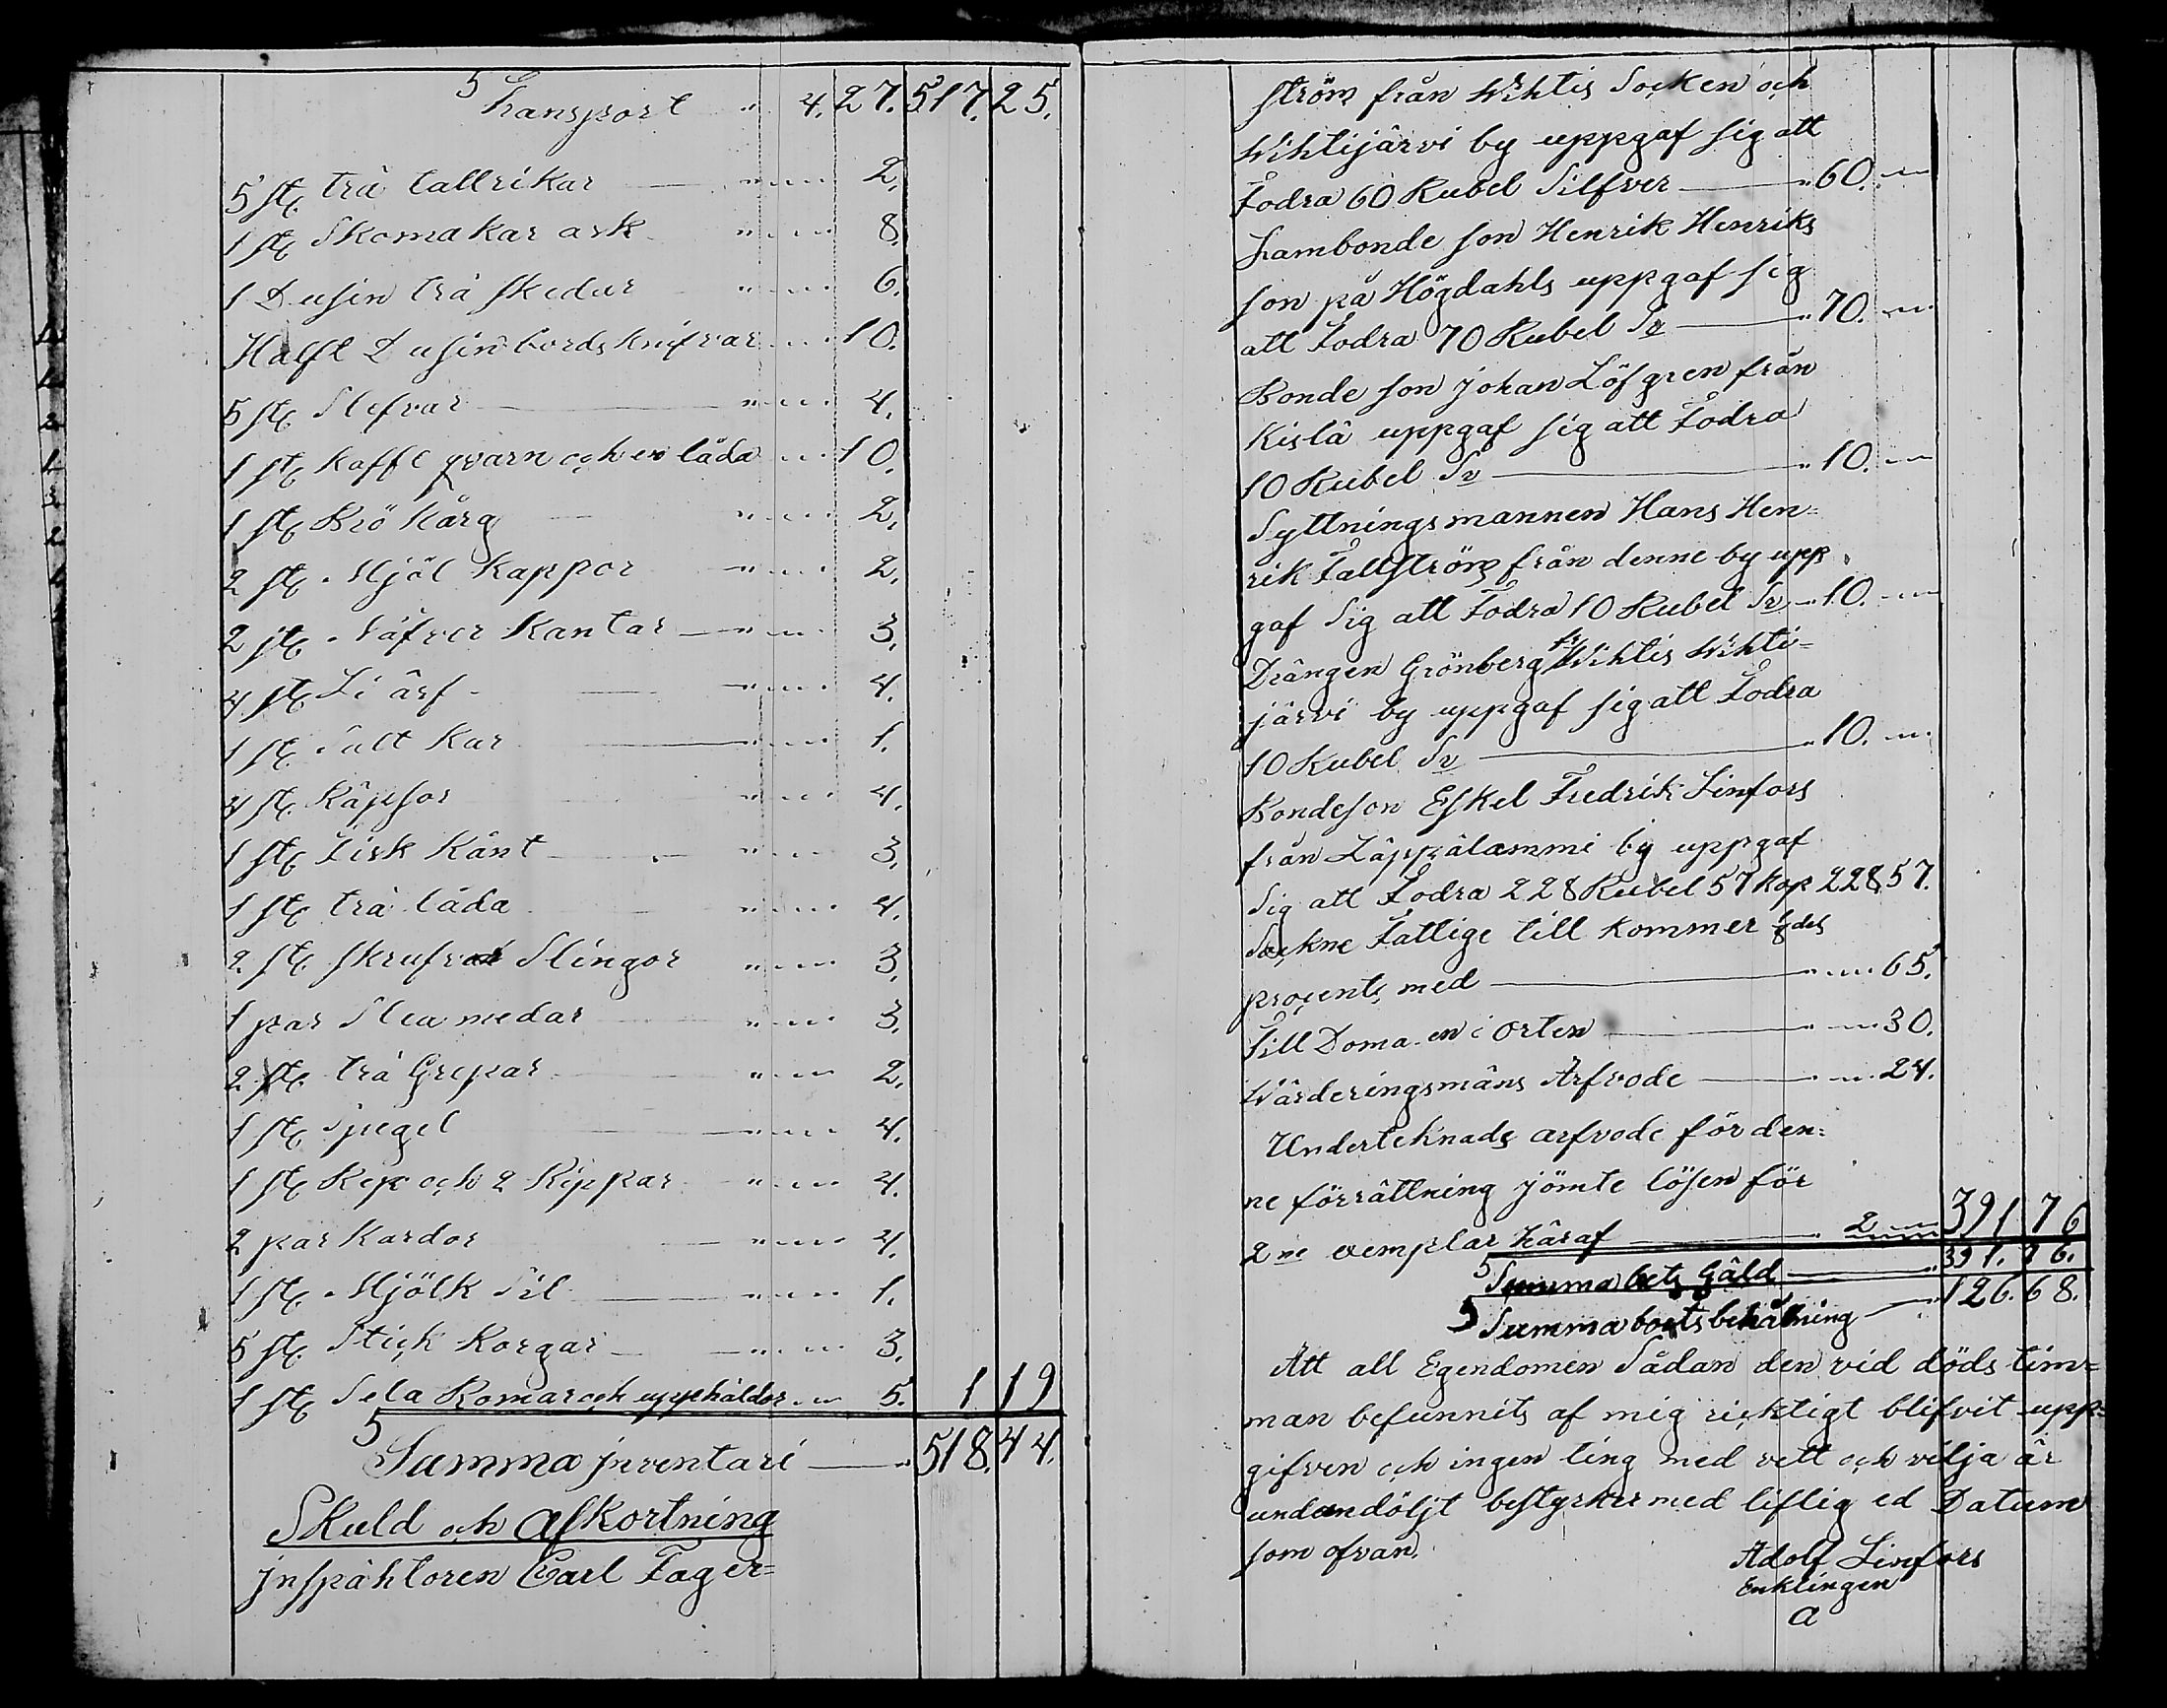 Transport " 4. 27. 517. 25.
5 st. trä tallrikar " " 2.
1 st. Skomakar ask " " 8.
1 Dusin trä skedar " " 6.
Halft Dusin bords knifvar " " 10.
5 st. Slefvar " " 4.
1 st. Kaffe qvarn och en låda " " 10.
1 st. Brö kårg " " 2.
2 st. Mjöl Kappor " " 2.
2 st. Näfver Kantar " " 3.
4 st. Li ârf " " 4.
1 st. Salt Kar " " 1.
4 st. Râpsor " " 4.
1 st. Fisk Kânt " " 3.
1 st. trä låda " " 4.
2 st. skrufvar Slingor " " 3.
1 par Slea medar " " 3.
2 st. trä Grepar " " 2.
1 st. Spegel " " 4.
1 st. Rep och 2 Kippar " " 4.
2 par Kardor " " 4.
1 st. Mjölk Sil " " 1.
5 st. Stick Korgar " " 3.
1 st. Sela Romar och upphåldor " " 5. 1 19
Summa jnventari " 518. 44.
Skuld och afkortning
jnspäktoren Carl Fager=
ström från Wihtis Socken och
Wihtijärvi by uppgaf sig att
Fodra 60 Rubel Silfver " 60. "
Frambonde son Henrik Henriks
son på Högdahls uppgaf sig
att Fodra 70 Rubel Sr " 70. "
Bonde son johan Löfgren från
Kislâ uppgaf sig att Fodra
10 Rubel Sr " 10. "
Syttningsmannen Hans Hen=
rik Fallström från denne by upp
gaf Sig att Fodra 10 Rubel Sr " 10. "
Drängen Grönberg fr Wihtis Wihti=
järvi by uppgaf sig att Fodra
10 Rubel Sr " 10. "
Bondeson Eskel Fredrik Linfors
från Läppälammi by uppgaf
Sig att Fodra 228 Rubel 57 kop 228 57.
Sockne Fattige till kommer 1/8 dels
procents med " " 65.
Till Doma-en i orten " " 30.
Wärderingsmäns Arfvode " " 24.
Underteknads arfvode för den=
ne förrättning jömte lösen för
2ne exemplar häraf " 2 " 391 76
Summa bets Gäld " 391. 76.
Summa boets behålning " 126. 68.
Att all Egendomen Sådan den vid döds tim=
man befunnits af mig ricktigt blifvit upp=
gifven och ingen ting med vett och vilja är
undandöljt bestyrker med liflig ed Datum
som ofvan.
Adolf Linfors
Enklingen
a